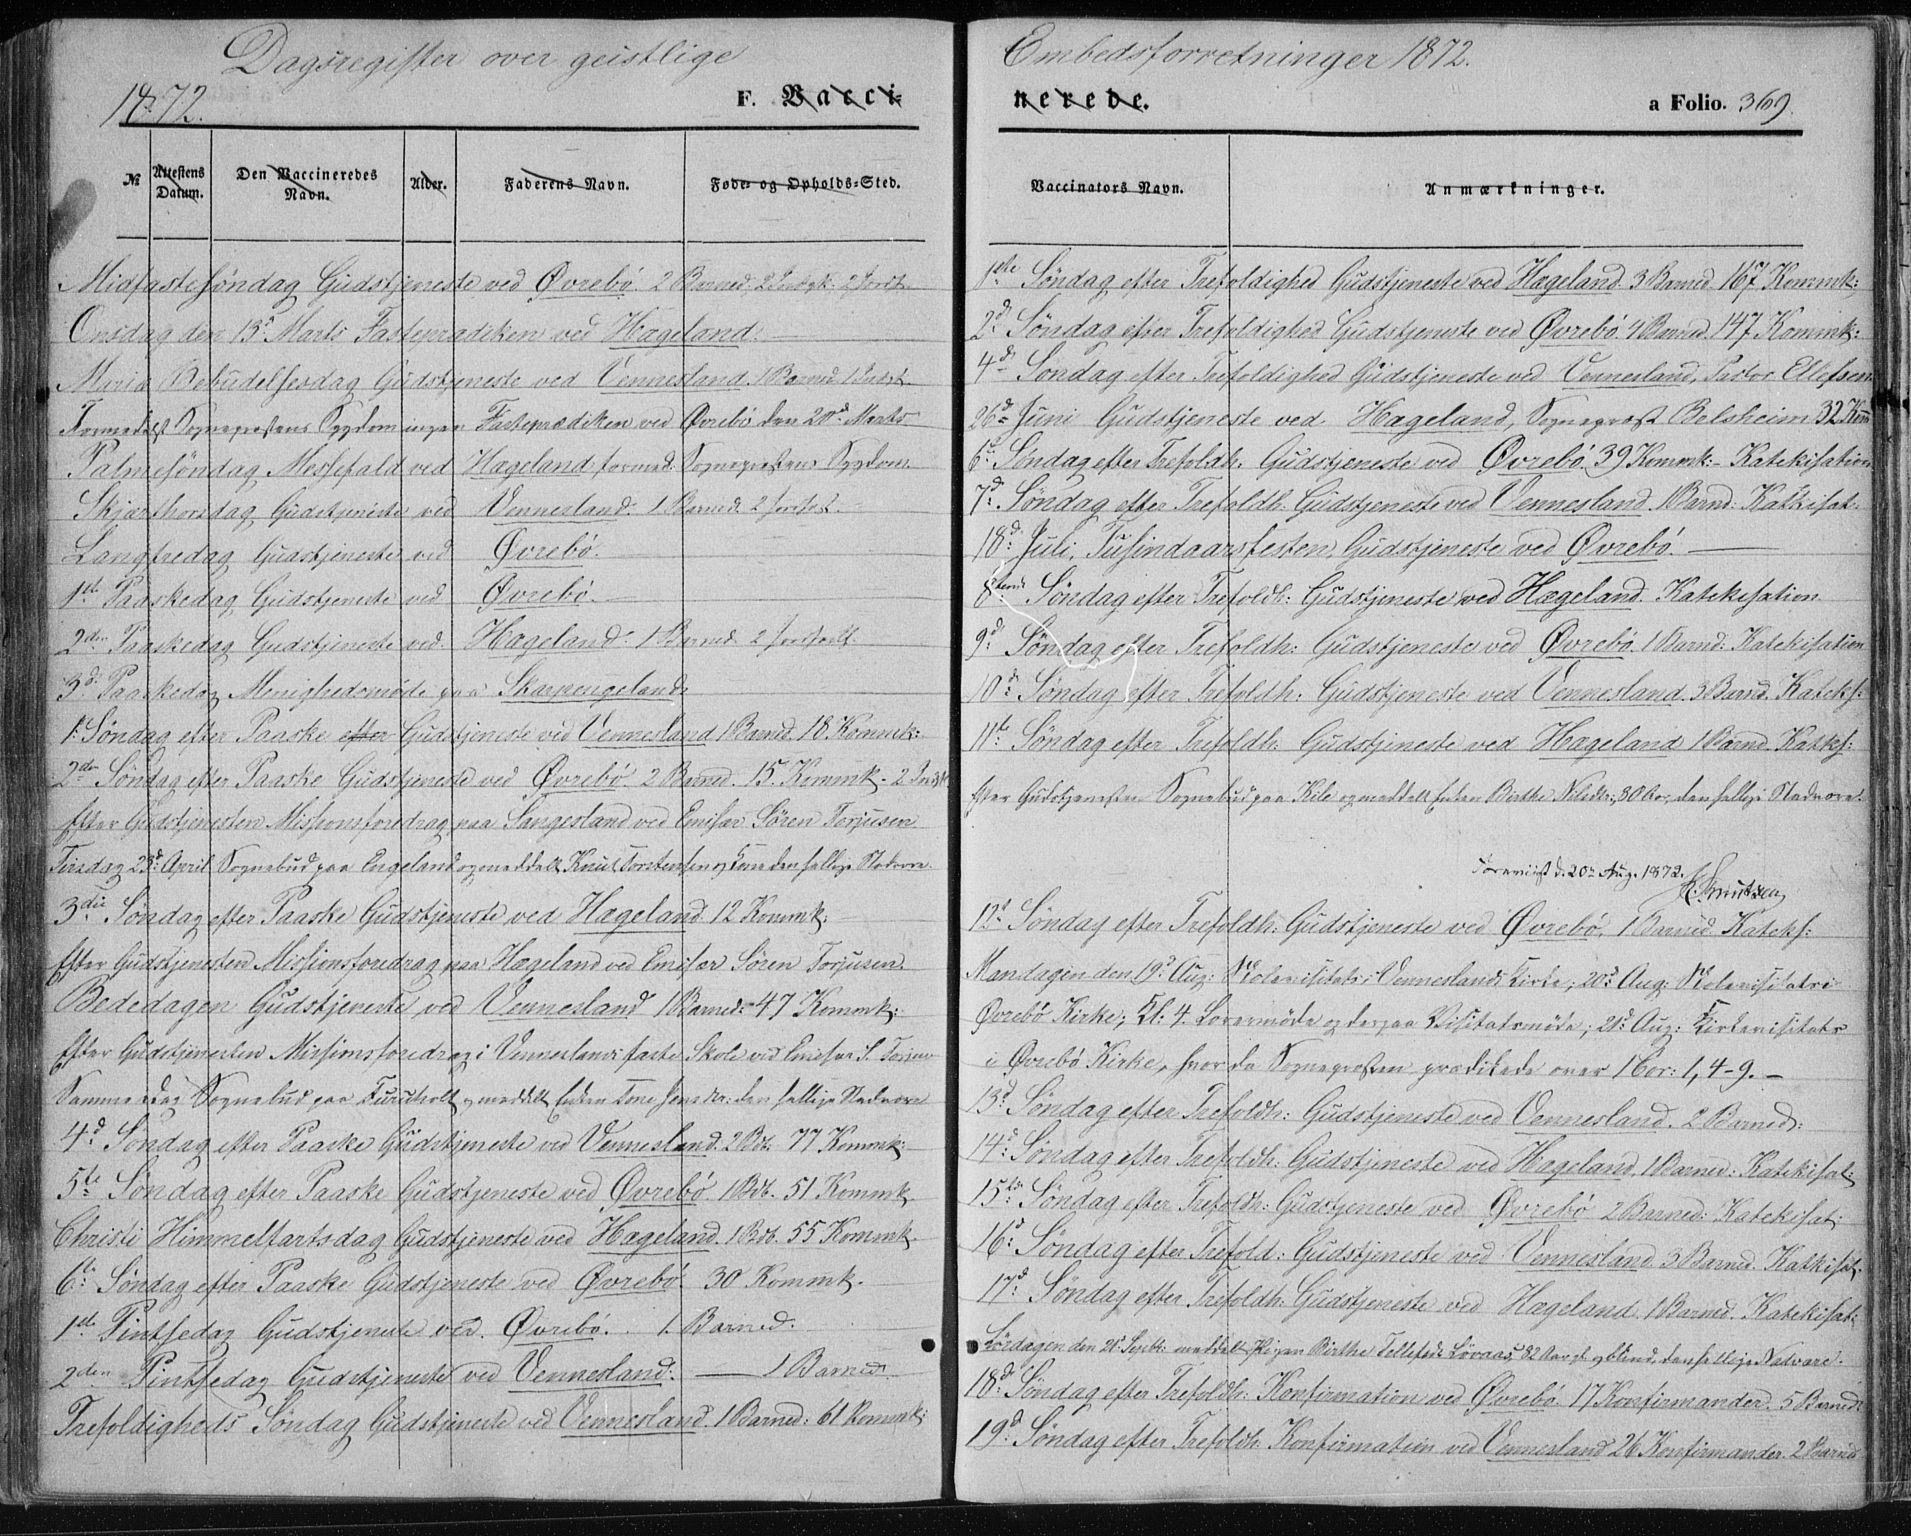 Dagsregister over geistlige
1872.
F. Vacci-
№
Attestens Datum.
Den Vaccineredes Navn.
Alder.
Faderens Navn.
Føde- og Opholds-Sted.
Midfastesøndag Gudstjeneste ved Øvrebö. 2 Barned. 2
Onsdag den 13d Marts Fasteprædiken ved Hægeland.
Mariæ Bebudelsesdag Gudstjeneste ved Vennesland. 1 Barned.
Formedelst Sogneprestens Sygdom ingen Fasteprædiken ved Øvrebö den 20nd Marts
Palmesöndag Messefald ved Hægeland formed. Sogneprestens Sygdom.
Skjærthorsdag Gudstjeneste ved Vennesland. 1 Barned. 2
Langfredag Gudstjeneste ved Øvrebö.
1ste Paaskedag Gudstjeneste ved Øvrebö.
2den Paaskedag Gudstjeneste ved Hægeland. 1 Barned. 2
3d Paaskedag Menighedsmöde paa Skarpengeland
1: Søndag efter Paaske efter Gudstjeneste ved Vennesland 1 Barned. 18 Kommk:
2den Søndag efter Paaske Gudstjeneste ved Øvrebö 2 Barned. 15 Kommk. 2
Efter Gudstjenesten Missionsforedrag paa Sangesland ved Emisær Sören Torjusen
Tirsdag 23d April Sognebud paa Engeland og meddelt Knut Torstensen den hellige Nadvere.
3die Søndag efter Paaske Gudstjeneste ved Hægeland 12 Kommk:
Efter Gudstjenesten Missionsforedrag paa Hægeland ved Emisær Sören Torjusen.
Bededagen Gudstjeneste ved Vennesland 1 Barned: 47 Kommk:
Efter Gudstjenesten Missionsforedrag i Venneslands faste Skole ved Emisær S. Torjusen
Samme Dag Sognebud paa og meddelt Enken Tone den hellige Nadvere
4d Søndag efter Paaske Gudstjeneste ved Vennesland. 2 Bdb. 77 Kommk:
5te Søndag efter Paaske Gudstjeneste ved Øvrebö 1 Bdb. 51 Kommk.
Christi Himmelfartsdag Gudstjeneste ved Hægeland. 1 Bdb. 55 Kommk.
6te Søndag efter Paaske Gudstjeneste ved Øvrebö. 30 Kommk.
1ste Pintsedag Gudstjeneste ved Øvrebö. 1 Barned.
2den Pintsedag Gudstjeneste ved Vennesland. — 1 Barned.
Trefoldigheds Søndag Gudstjeneste ved Vennesland. 1 Barned: 61 Kommk:
Embedsforretninger 1872.
nerede.
a Folio. 369.
Vaccinators Navn.
Anmærkninger.
1ste Søndag efter Trefoldighed Gudstjeneste ved Hægeland 3 Barned. 167 Kommk:
2d Søndag efter Trefoldighed Gudstjeneste ved Øvrebö. 4 Barned. 147 Kommk:
4d Søndag efter Trefoldighed Gudstjeneste ved Vennesland, Pastor Ellefsen
26d Juni Gudstjeneste ved Hægeland, Sogneprest Belsheim 32 Komm
6te Søndag efter Trefoldh: Gudstjeneste ved Øvrebö. 39 Kommk: - Katekisation
7d Søndag efter Trefoldh: Gudstjeneste ved Vennesland. 1 Barnd: Katkisat.
18d Juli, Tusindaarsfesten, Gudstjeneste ved Øvrebö.
8tende Søndag efter Trefoldh: Gudstjeneste ved Hægeland. Katekisation
9d Søndag efter Trefoldh: Gudstjeneste ved Øvrebö. 1 Barnd: Katekisation
10d Søndag efter Trefoldh: Gudstjeneste ved Vennesland. 3 Barnd. Kateks:
11te Søndag efter Trefoldh: Gudstjeneste ved Hægeland 1 Barnd. Katks:
Efter Gudstjenesten Sognebud paa Kile og meddelt Enken Birthe 80 Aar, den hellige Nadvere.
Foreviist d. 20de Aug. 1872.
Knutzen
12t Søndag efter Trefoldh: Gudstjeneste ved Øvrebö. 1 Barned. Kateks:
Mandagen den 19d Aug: Skolevisitats i Venneslands Kirke; 20d Aug: Skolevisitats i
Øvrebö Kirke; Kl: 4. Lærermöde og derpaa Visitatsmöde; 21d Aug: Kirkevisitats
i Øvrebö Kirke, hvor da Sognepresten prædikede over 1 Cor: 1, 4-9. —
13d Søndag efter Trefoldh: Gudstjeneste ved Vennesland. 2 Barned:
14d Søndag efter Trefoldh: Gudstjeneste ved Hægeland, 1 Barned: Katekisat:
15te Søndag efter Trefoldh: Gudstjeneste ved Øvrebö 2 Barned: Katekisat:
16d Søndag efter Trefold: Gudstjeneste ved Vennesland. 3 Barned. Katkisat.
17d Søndag efter Trefoldh: Gudstjeneste ved Hægeland. 1 Barned. Katekisat:
Lördagen den 21d Septbr: meddelt Pigen Birthe Tellefsd. Lövaas, 82 Aar gl. og blind, den hellige Nadvere.
18d Søndag efter Trefoldh: Konfirmation ved Øvrebö. 17 Konfirmander. 5 Barned:
19d Søndag efter Trefoldh: Konfirmation ved Vennesland 26 Konfirmander. 2 Barned